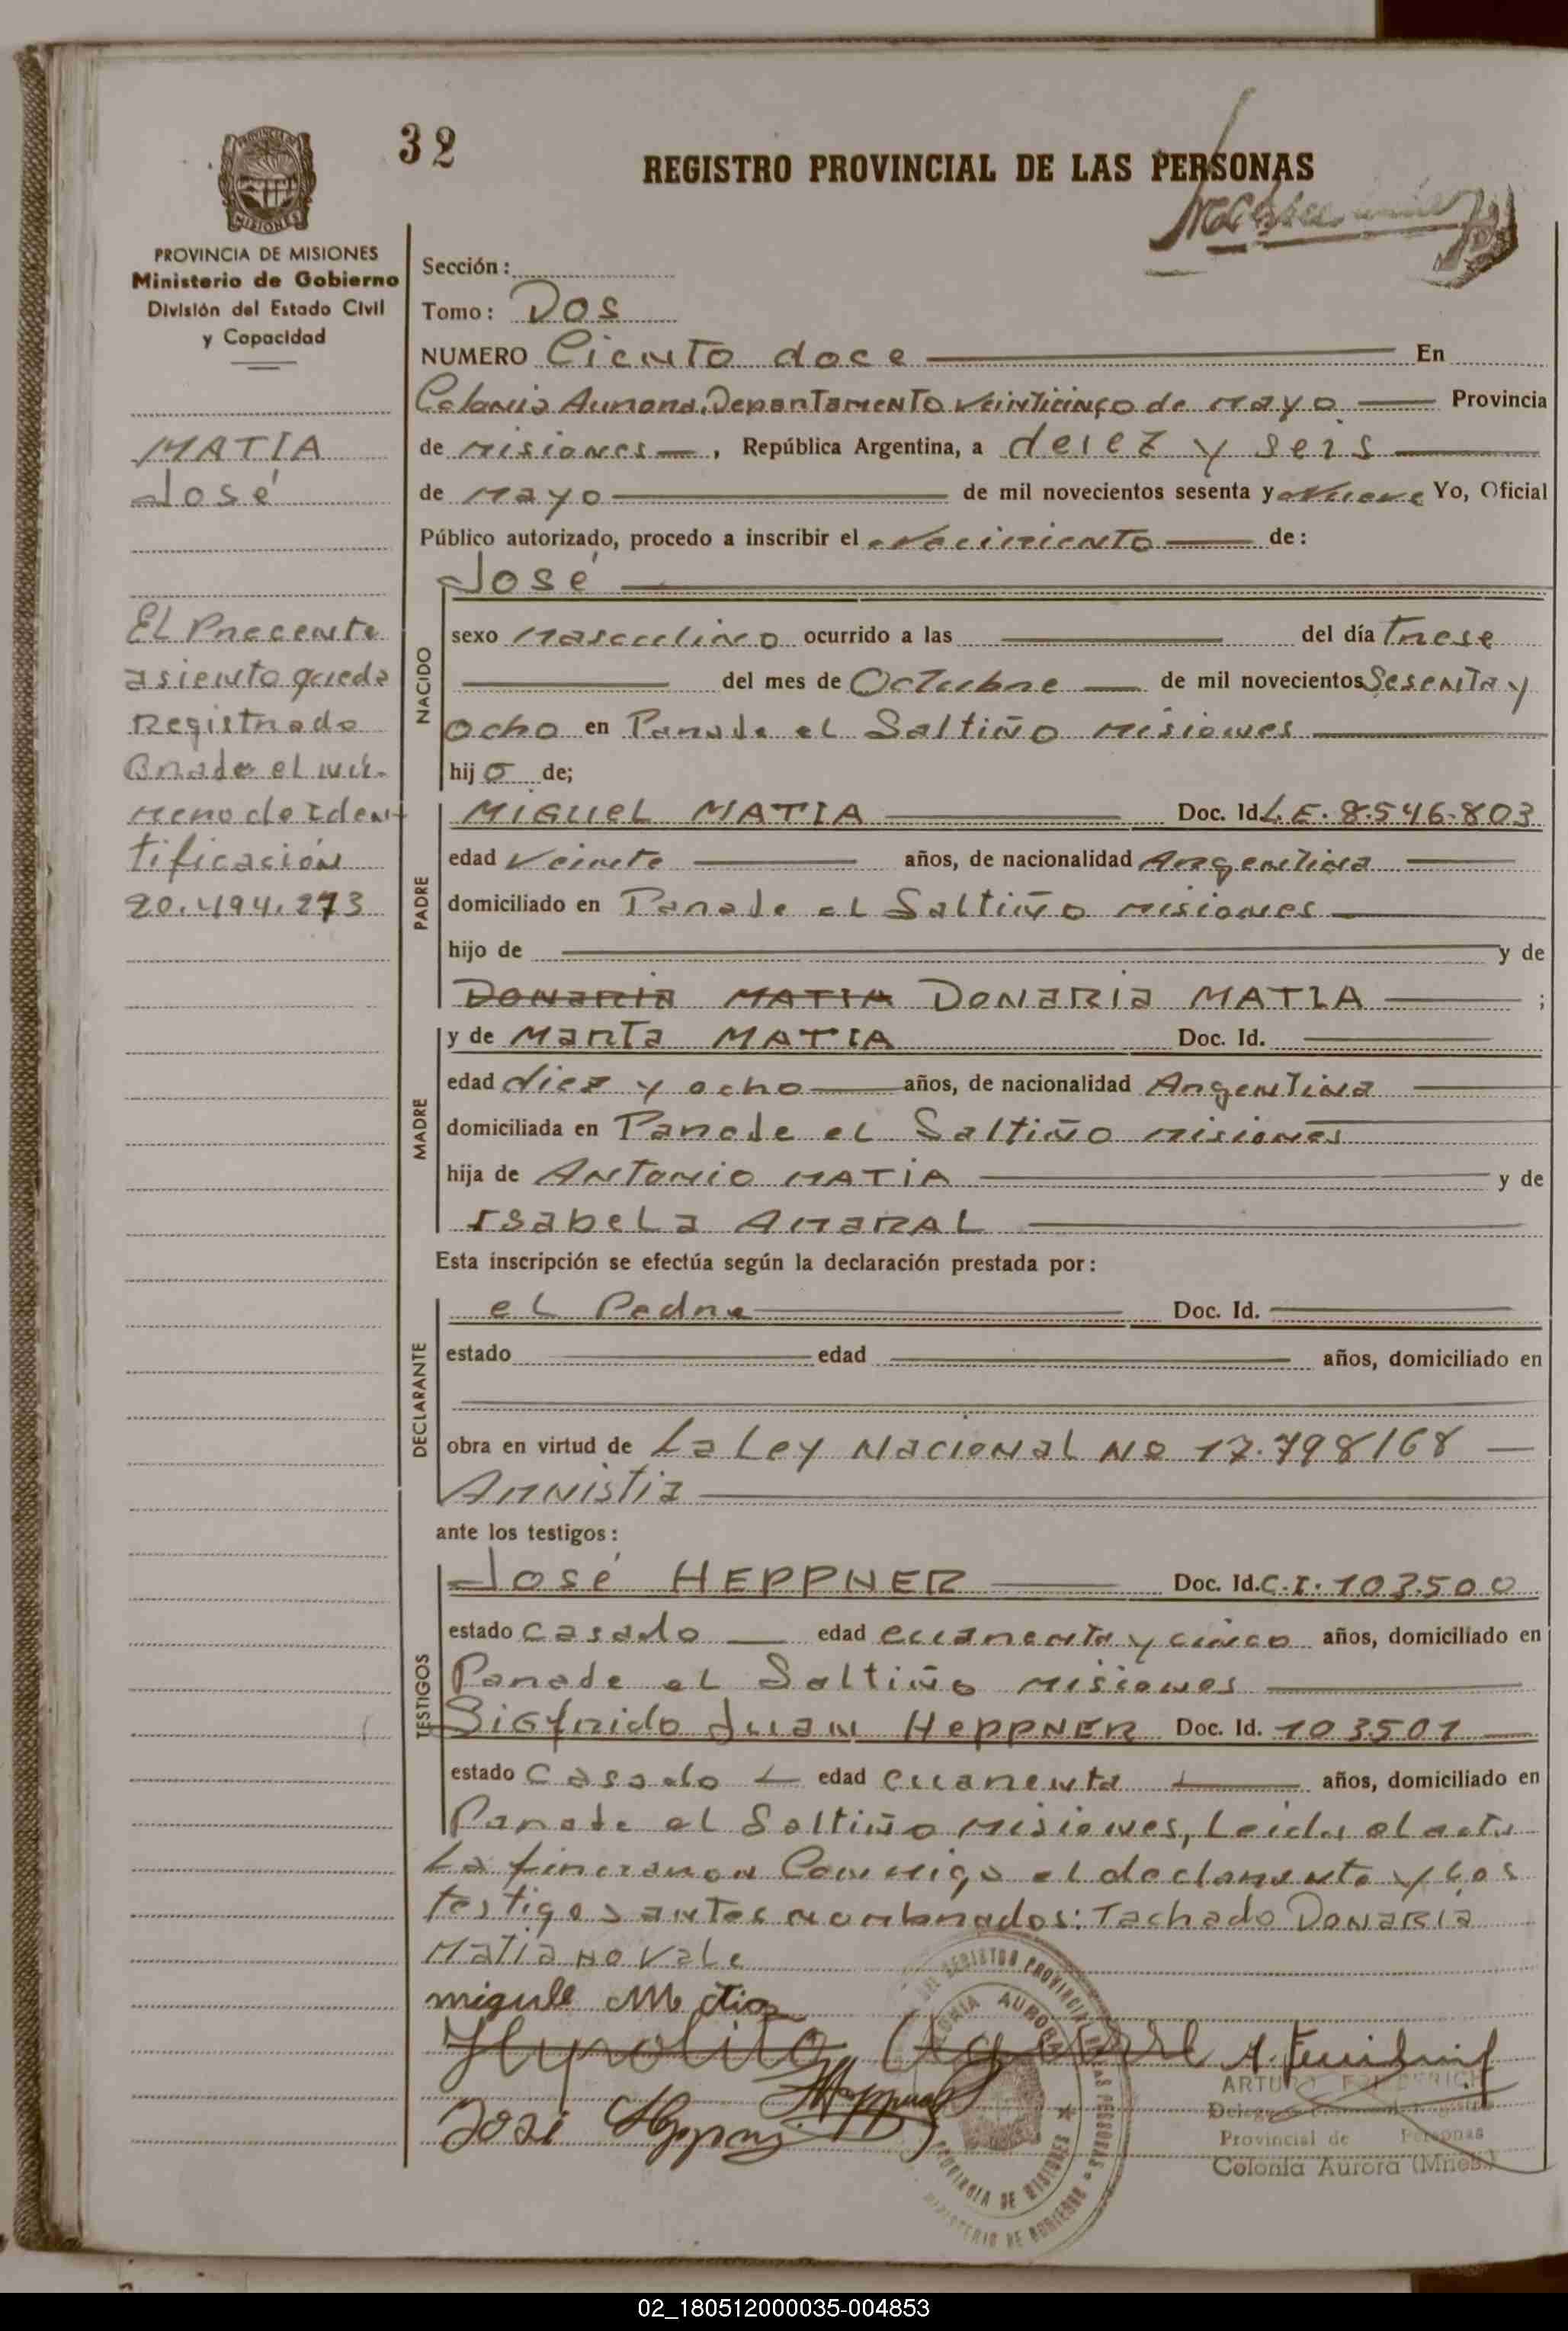 32
REGISTRO PROVINCIAL DE LAS PERSONAS
PROVINCIA DE MISIONES
Ministerio de Gobierno
División del Estado Civil
y Capacidad
MATIA
José
El Precente
asiento queda
Registrado
el nú-
mero de Iden-
tificación
20.494.273
Sección:
Tomo: Dos
NUMERO Ciento doce En
Colonia Aurora, Departamento Veinticinco de Mayo Provincia
de Misiones, República Argentina, a deiez y seis
de Mayo de mil novecientos sesenta y Nueve Yo, Oficial
Público autorizado, procedo a inscribir el Nacimiento de:
NACIDO
José
sexo Masculino ocurrido a las del día Trese
del mes de Octubre de mil novecientos Sesenta y
ocho en Parade el Saltiño Misiones
hijo de;
PADRE
MIGUEL MATIA Doc. Id. L.E. 8.546.803
edad Veinte años, de nacionalidad Argentina
domiciliado en Parade el Saltiño Misiones
hijo de y de
DONARIA MATIA DONARIA MATIA ;
MADRE
y de Marta MATIA Doc. Id.
edad diez y ocho años, de nacionalidad Argentina
domiciliada en Parade el Saltiño Misiones
hija de Antonio MATIA y de
Isabela AMARAL
Esta inscripción se efectúa según la declaración prestada por:
DECLARANTE
el Padre Doc. Id.
estado edad años, domiciliado en
obra en virtud de La Ley Nacional No 17.798/68
Amnistia
ante los testigos:
TESTIGOS
José HEPPNER Doc. Id. C.I. 103.500
estado casado edad cuarenta y cinco años, domiciliado en
Parade el Saltiño Misiones
Sigfrido Juan HEPPNER Doc. Id. 103501
estado Casado edad cuarenta años, domiciliado en
Parade el Saltiño Misiones, Leida el acta
La firmaron Conmigo el declarante y los
testigos antes nombrados: Tachado Donaria
Matia no Vale
migule Matia
Hypolito
José Heppner
Heppner
DEL REGISTRO PROVINCIAL DE LAS PERSONAS
COLONIA AURORA
PROVINCIA DE MISIONES
MINISTERIO DE GOBIERNO
ARTURO
Provincial de Personas
Colonia Aurora (Mnes.)
02_180512000035-004853